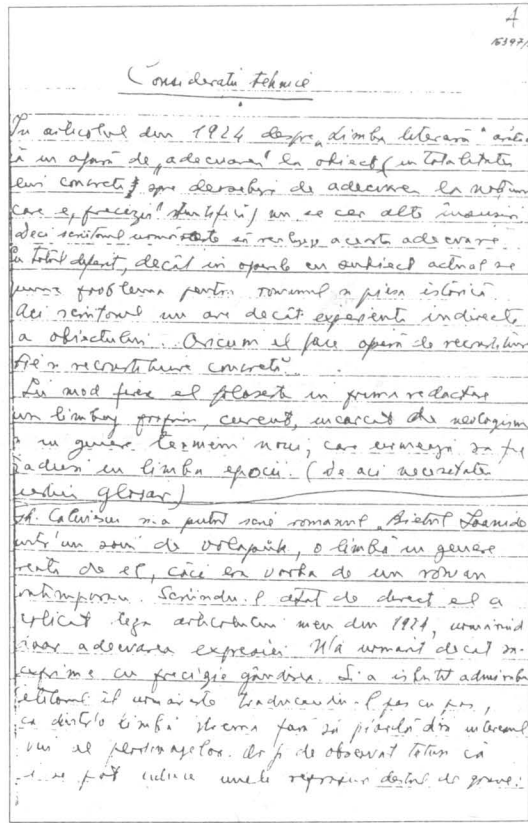 4
15397/
Considerații tehnice
În articolul din 1924 despre „limba literară"
că în afară de „adecuarea" la obiect, (în totalitatea
lui concretă, spre deosebire de adecuarea la
care e „precizia" științifică) nu se cer alte însușiri
Deci scriitorul urmărește să realizeze această adecvare
În totul diferit, decât în operele cu subiect actual se
pune problema pentru romanul și piesa istorică
Aci scriitorul nu are decât experiența indirectă
a obiectului. Oricum el face operă de reconstituire
fie și reconstituire concretă.
În mod firesc el folosește în prima redactare
un limbaj propriu, curent, încărcat de neologisme
și în genere termeni noui, cari urmează să fie
în limba epocii. (De aci necesitatea
unui glosar)
Gh. Călinescu și-a putut scrie romanul „Bietul Ioanide
într'un soi de volapük, o limbă în genere
de el, căci era vorba de un roman
contemporan. Scriindu-l atât de direct el a
aplicat legea articolului meu din 1924, urmărind
doar adecuarea expresiei. N'a urmărit decât să-
exprime cu precizie gândirea. Și a isbutit admirabil
cetitorul îl urmărește traducându-l pas cu pas,
ca dintr'o limbă streină fără să piardă din interesul
viu al personagiilor. Ar fi de observat totuși că
i se pot aduce unele reproșuri destul de grave: